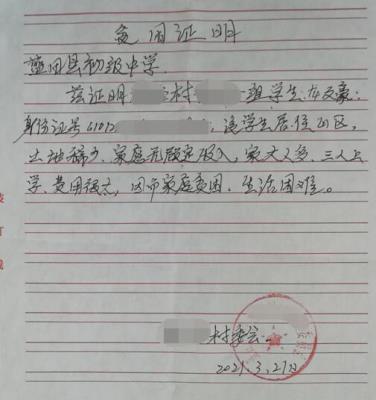 贫困证明
蓝田县初级中学
兹证明 村 一组学生
身份证号6101 ，该学生居住山区，
土地稀少、家庭无固定收入，家大人多、三人上
学、费用很大，因而家庭贫困、生活困难。
村委会
2021.3.27日